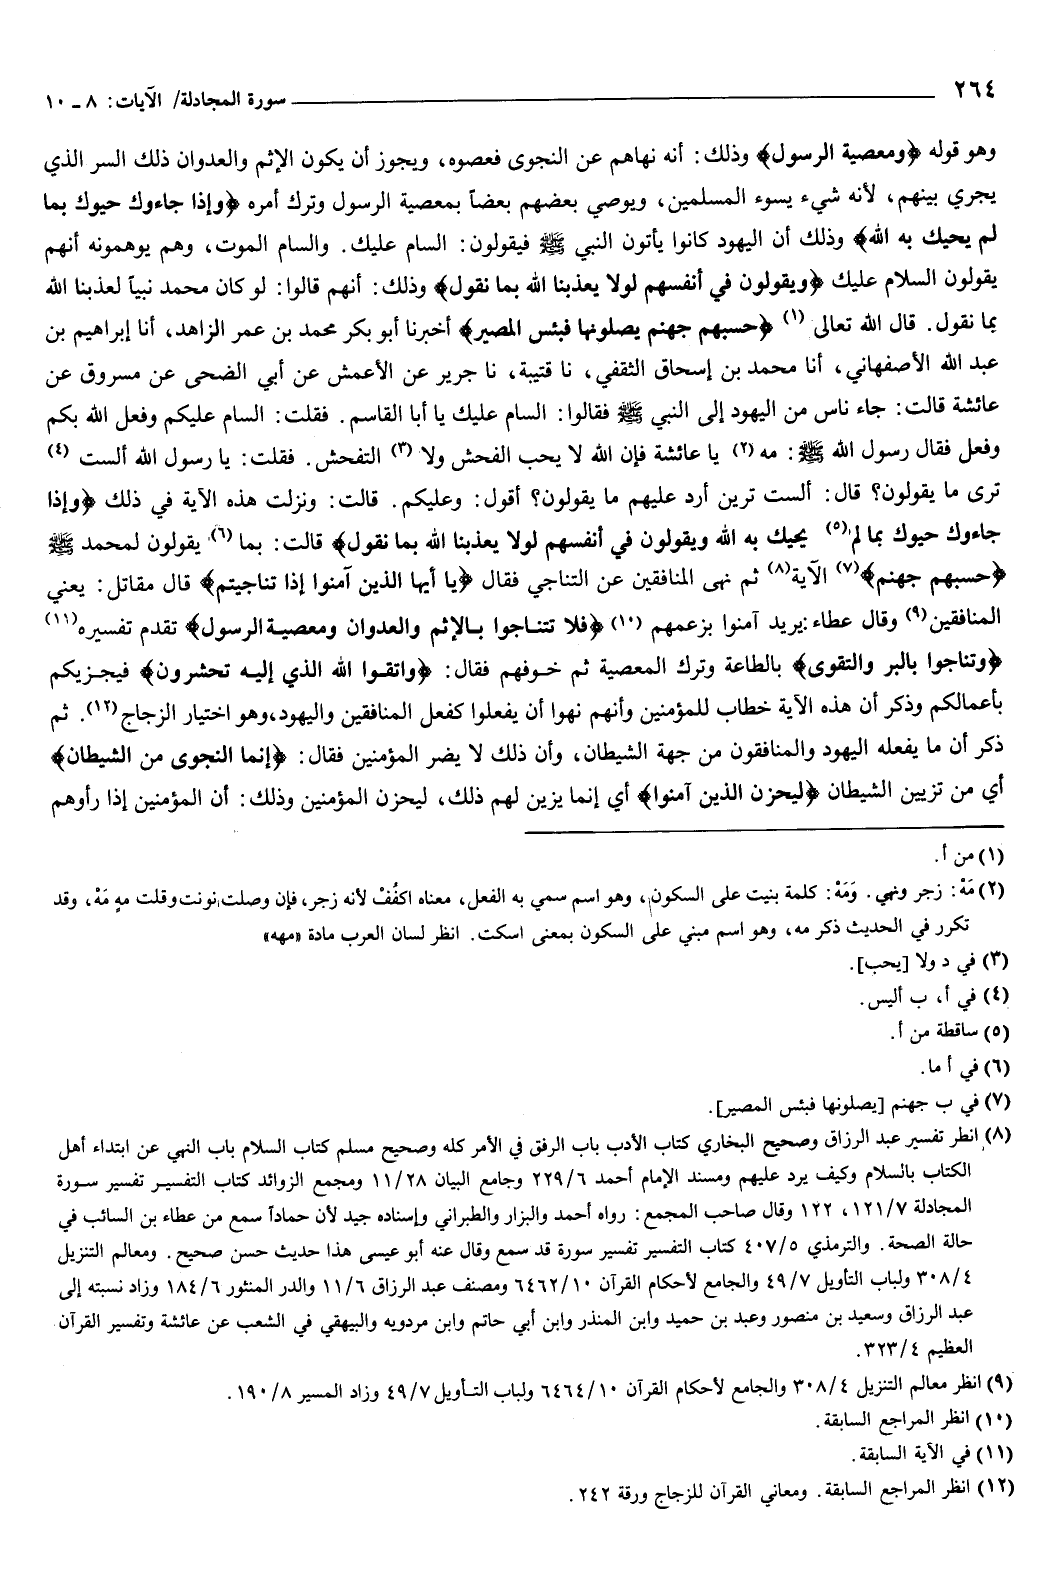 ٢٦٤ سورة المجادلة/ الآيات: ٨ ـ ١٠
وهو قوله ﴿ومعصية الرسول﴾ وذلك: أنه نهاهم عن النجوى فعصوه، ويجوز أن يكون الإثم والعدوان ذلك السر الذي
يجري بينهم، لأنه شيء يسوء المسلمين، ويوصي بعضهم بعضاً بمعصية الرسول وترك أمره ﴿وإذا جاءوك حيوك بما
لم يحيك به الله﴾ وذلك أن اليهود كانوا يأتون النبي ﷺ فيقولون: السام عليك. والسام الموت، وهم يوهمونه أنهم
يقولون السلام عليك ﴿ويقولون في أنفسهم لولا يعذبنا الله بما نقول﴾ وذلك: أنهم قالوا: لو كان محمد نبياً لعذبنا الله
بما نقول. قال الله تعالى (١) ﴿حسبهم جهنم يصلونها فبئس المصير﴾ أخبرنا أبو بكر محمد بن عمر الزاهد، أنا إبراهيم بن
عبد الله الأصفهاني، أنا محمد بن إسحاق الثقفي، نا قتيبة، نا جرير عن الأعمش عن أبي الضحى عن مسروق عن
عائشة قالت: جاء ناس من اليهود إلى النبي ﷺ فقالوا: السام عليك يا أبا القاسم. فقلت: السام عليكم وفعل الله بكم
وفعل فقال رسول الله ﷺ: مه (٢) يا عائشة فإن الله لا يحب الفحش ولا (٣) التفحش. فقلت: يا رسول الله ألست (٤)
ترى ما يقولون؟ قال: ألست ترين أرد عليهم ما يقولون؟ أقول: وعليكم. قالت: ونزلت هذه الآية في ذلك ﴿وإذا
جاءوك حيوك بما لم(٥) يحيك به الله ويقولون في أنفسهم لولا يعذبنا الله بما نقول﴾ قالت: بما (٦) يقولون لمحمد ﷺ
﴿حسبهم جهنم﴾(٧) الآية(٨) ثم نهى المنافقين عن التناجي فقال ﴿يا أيها الذين آمنوا إذا تناجيتم﴾ قال مقاتل: يعني
المنافقين(٩) وقال عطاء: يريد آمنوا بزعمهم (١٠) ﴿فلا تتناجوا بالإثم والعدوان ومعصية الرسول﴾ تقدم تفسيره(١١)
﴿وتناجوا بالبر والتقوى﴾ بالطاعة وترك المعصية ثم خوفهم فقال: ﴿واتقوا الله الذي إليه تحشرون﴾ فيجزيكم
بأعمالكم وذكر أن هذه الآية خطاب للمؤمنين وأنهم نهوا أن يفعلوا كفعل المنافقين واليهود، وهو اختيار الزجاج(١٢). ثم
ذكر أن ما يفعله اليهود والمنافقون من جهة الشيطان، وأن ذلك لا يضر المؤمنين فقال: ﴿إنما النجوى من الشيطان﴾
أي من تزيين الشيطان ﴿ليحزن الذين آمنوا﴾ أي إنما يزين لهم ذلك، ليحزن المؤمنين وذلك: أن المؤمنين إذا رأوهم
(١) من أ.
(٢) مَهْ: زجر ونهي. وَمَهْ: كلمة بنيت على السكون، وهو اسم سمي به الفعل، معناه اكفُفْ لأنه زجر، فإن وصلت نونت وقلت مهٍ مَهْ، وقد
تكرر في الحديث ذكر مه، وهو اسم مبني على السكون بمعنى اسكت. انظر لسان العرب مادة «مهه»
(٣) في د ولا [يحب].
(٤) في أ، ب أليس.
(٥) ساقطة من أ.
(٦) في أ ما.
(٧) في ب جهنم [يصلونها فبئس المصير].
(٨) انظر تفسير عبد الرزاق وصحيح البخاري كتاب الأدب باب الرفق في الأمر كله وصحيح مسلم كتاب السلام باب النهي عن ابتداء أهل
الكتاب بالسلام وكيف يرد عليهم ومسند الإمام أحمد ٢٢٩/٦ وجامع البيان ١١/٢٨ ومجمع الزوائد كتاب التفسير تفسير سورة
المجادلة ١٢١/٧، ١٢٢ وقال صاحب المجمع: رواه أحمد والبزار والطبراني وإسناده جيد لأن حماداً سمع من عطاء بن السائب في
حالة الصحة. والترمذي ٤٠٧/٥ كتاب التفسير تفسير سورة قد سمع وقال عنه أبو عيسى هذا حديث حسن صحيح. ومعالم التنزيل
٣٠٨/٤ ولباب التأويل ٤٩/٧ والجامع لأحكام القرآن ٦٤٦٢/١٠ ومصنف عبد الرزاق ١١/٦ والدر المنثور ١٨٤/٦ وزاد نسبته إلى
عبد الرزاق وسعيد بن منصور وعبد بن حميد وابن المنذر وابن أبي حاتم وابن مردويه والبيهقي في الشعب عن عائشة وتفسير القرآن
العظيم ٣٢٣/٤.
(٩) انظر معالم التنزيل ٣٠٨/٤ والجامع لأحكام القرآن ٦٤٦٤/١٠ ولباب التأويل ٤٩/٧ وزاد المسير ١٩٠/٨.
(١٠) انظر المراجع السابقة.
(١١) في الآية السابقة.
(١٢) انظر المراجع السابقة. ومعاني القرآن للزجاج ورقة ٢٤٢.